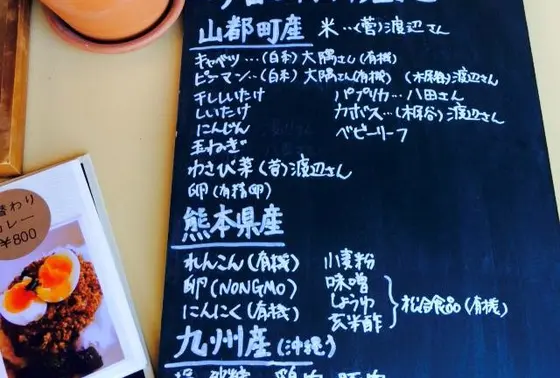 山都町産 米…(菅)渡辺さん
キャベツ…(白糸)大隅さん(有機)
ピーマン…(白糸)大隅さん(有機) (木原谷)渡辺さん
干ししいたけ パプリカ…八田さん
しいたけ カボス…(木原谷)渡辺さん
にんじん ベビーリーフ
玉ねぎ
わさび菜(菅)渡辺さん
卵(有精卵)
熊本県産
れんこん(有機) 小麦粉
卵(NONGMO) 味噌
にんにく(有機) しょうゆ 松合食品(有機)
玄米酢
九州産(沖縄)
塩 砂糖 鶏肉 豚肉
替わり
カレー
¥800